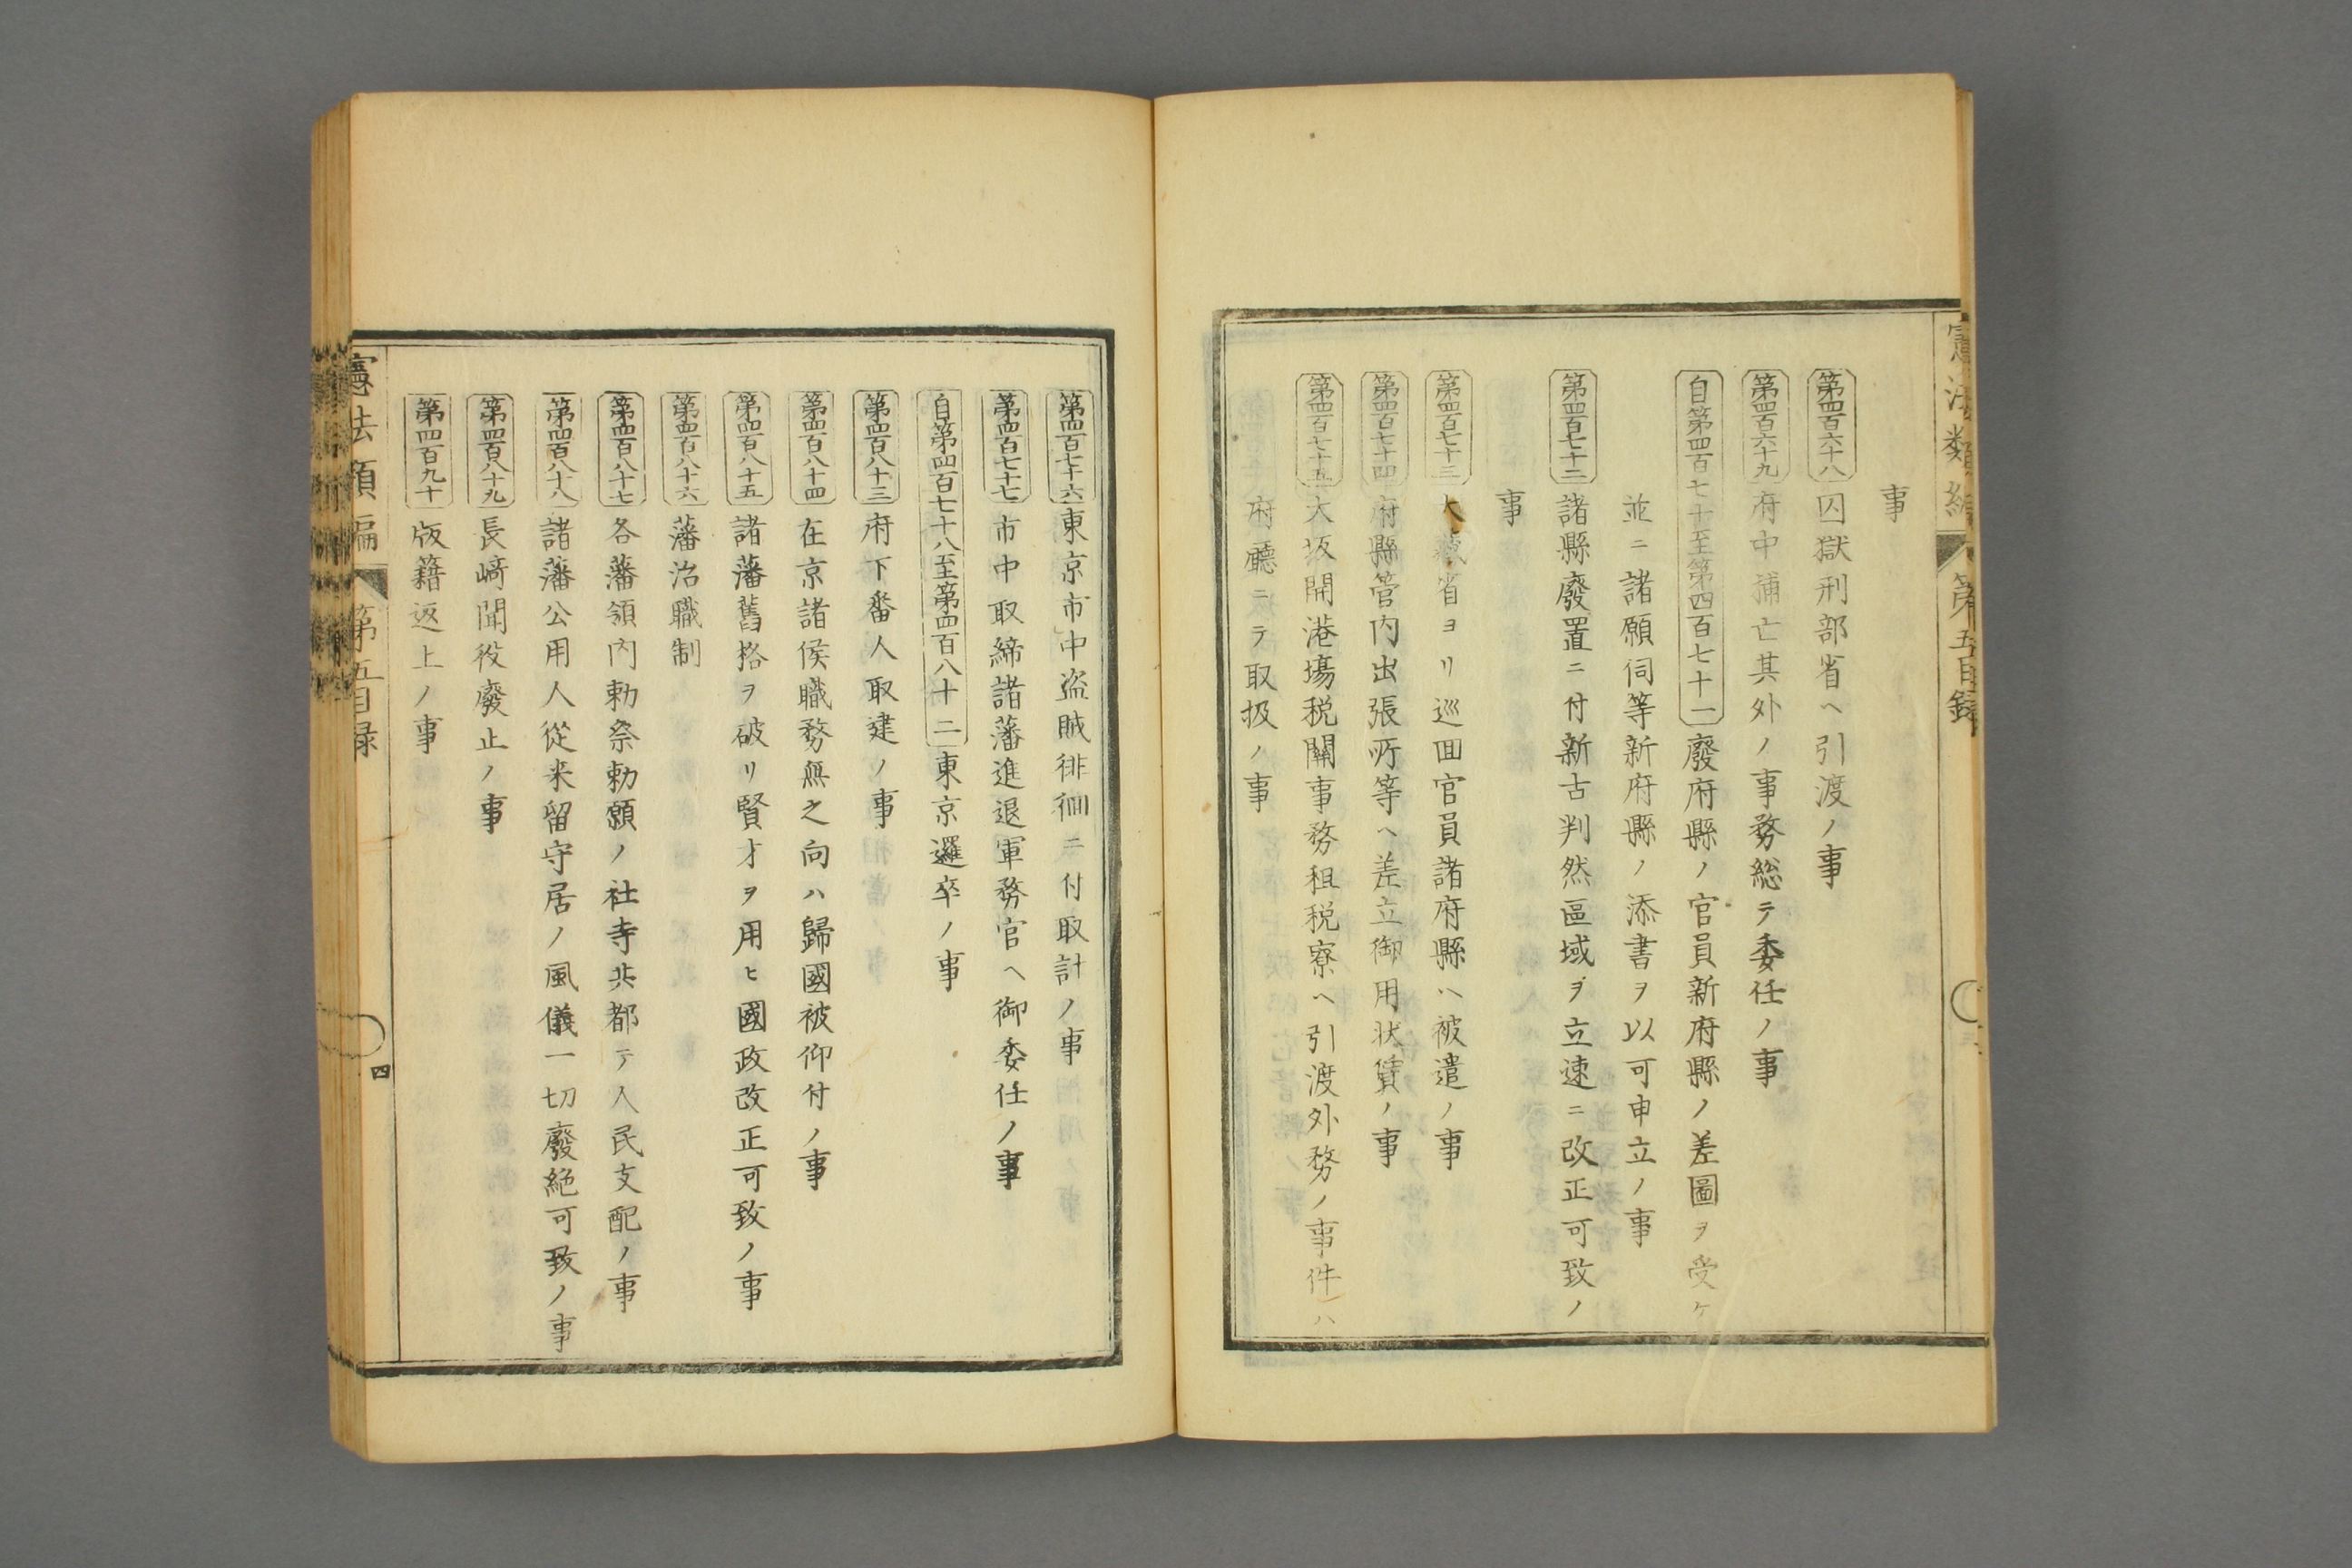 憲法類編 第五目録
事
第四百六十八 囚獄刑部省ヘ引渡ノ事
第四百六十九 府中捕亡其外ノ事務総テ委任ノ事
自第四百七十至第四百七十一 廢府縣ノ官員新府縣ノ差圖ヲ受ケ
並ニ諸願伺等新府縣ノ添書ヲ以可申立ノ事
第四百七十二 諸縣廢置ニ付新古判然區域ヲ立速ニ改正可致ノ
事
第四百七十三 大藏省ヨリ巡回官員諸府縣ヘ被遣ノ事
第四百七十四 府縣管内出張所等ヘ差立御用状賃ノ事
第四百七十五 大坂開港場税關事務租税寮ヘ引渡外務ノ事件ハ
府廳ニテ取扱ノ事
第四百七十六 東京市中盗賊徘徊ニ付取計ノ事
第四百七十七 市中取締諸藩進退軍務官ヘ御委任ノ事
自第四百七十八至第四百八十二 東京邏卒ノ事
第四百八十三 府下番人取建ノ事
第四百八十四 在京諸侯職務無之向ハ歸國被仰付ノ事
第四百八十五 諸藩舊格ヲ破リ賢才ヲ用ヒ國政改正可致ノ事
第四百八十六 藩治職制
第四百八十七 各藩領内勅祭勅願ノ社寺共都テ人民支配ノ事
第四百八十八 諸藩公用人從来留守居ノ風儀一切廢絶可致ノ事
第四百八十九 長﨑聞役廢止ノ事
第四百九十 版籍返上ノ事
憲法類編 第五目録 四